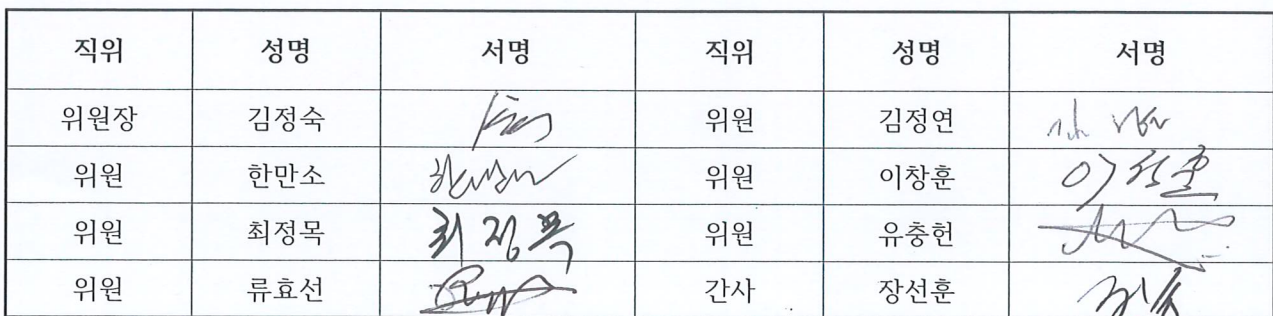 직위 성명 서명 직위 성명 서명
위원장 김정숙 위원 김정연
위원 한만소 위원 이창훈 이창훈
위원 최정목 최정목 위원 유충헌
위원 류효선 간사 장선훈